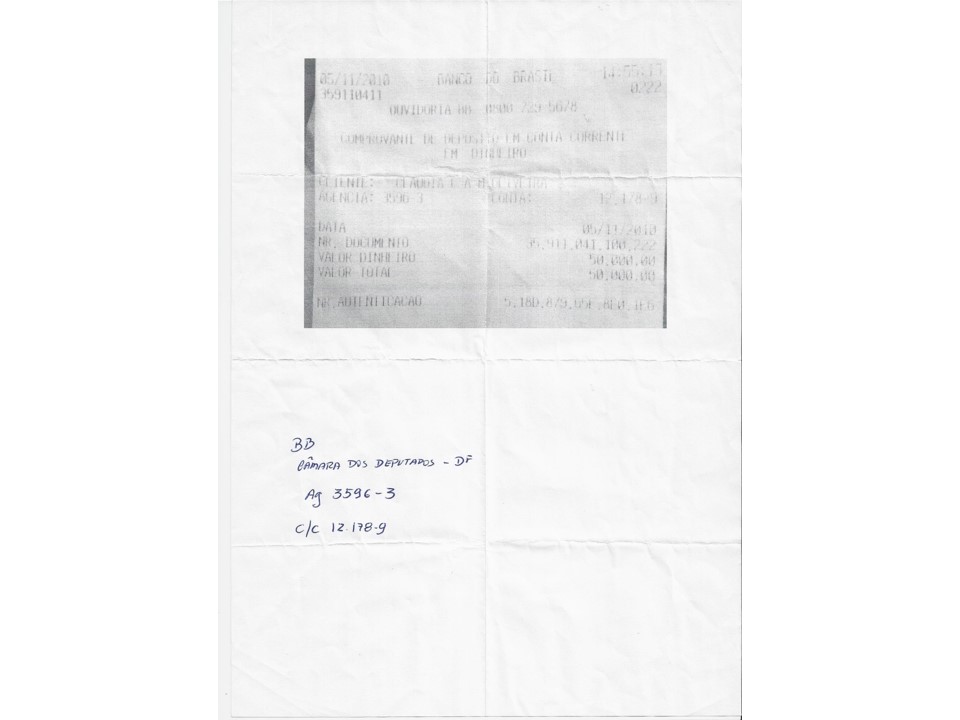 05/11/2010 - BANCO DO BRASIL - 14:55:13
359110411 0222
OUVIDORIA BB 0800 729 5678
COMPROVANTE DE DEPOSITO EM CONTA CORRENTE
EM DINHEIRO
CLIENTE: CLAUDIA
AGENCIA: 3596-3 CONTA: 12.178-9
DATA 05/11/2010
NR. DOCUMENTO 35.911.041.100.222
VALOR DINHEIRO 50.000,00
VALOR TOTAL 50.000,00
NR.AUTENTICACAO
BB
CÂMARA DOS DEPUTADOS - DF
Ag 3596-3
C/C 12.178-9